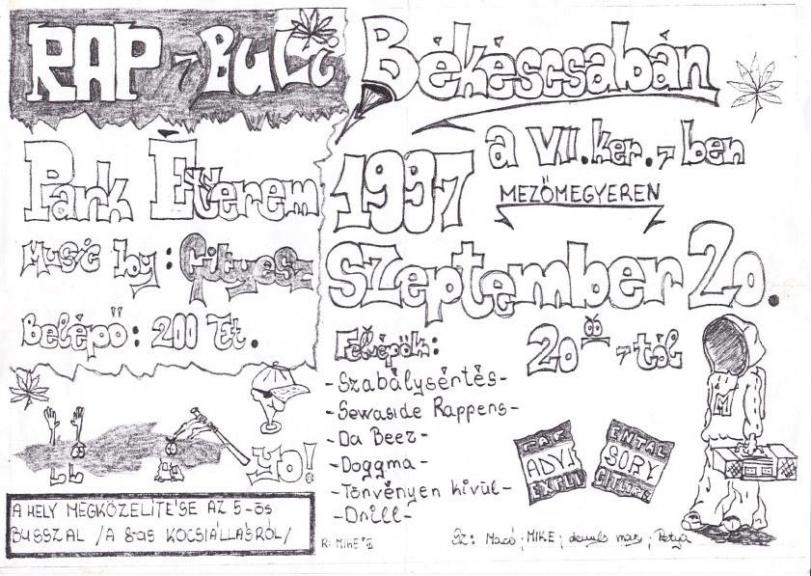 RAP-BULI Békéscsabán
a VII.ker.-ben
MEZŐMEGYEREN
Park Étterem
1997
Szeptember 20.
Music by: Gityesz
Belépő: 200 Ft.
20 -tól
Fellépők:
-Szabálysértés-
-Sewaside Rappers-
-Da Beez-
-Doggma-
-Törvényen kívül-
-Drill-
YO!
M
ADVI
EXPLI
ENTAL
SORY
A HELY MEGKÖZELÍTÉSE AZ 5-ÖS
BUSSZAL /A 8-as KOCSIÁLLÁSRÓL/
R: MIKE
Sz: Macó, MIKE,